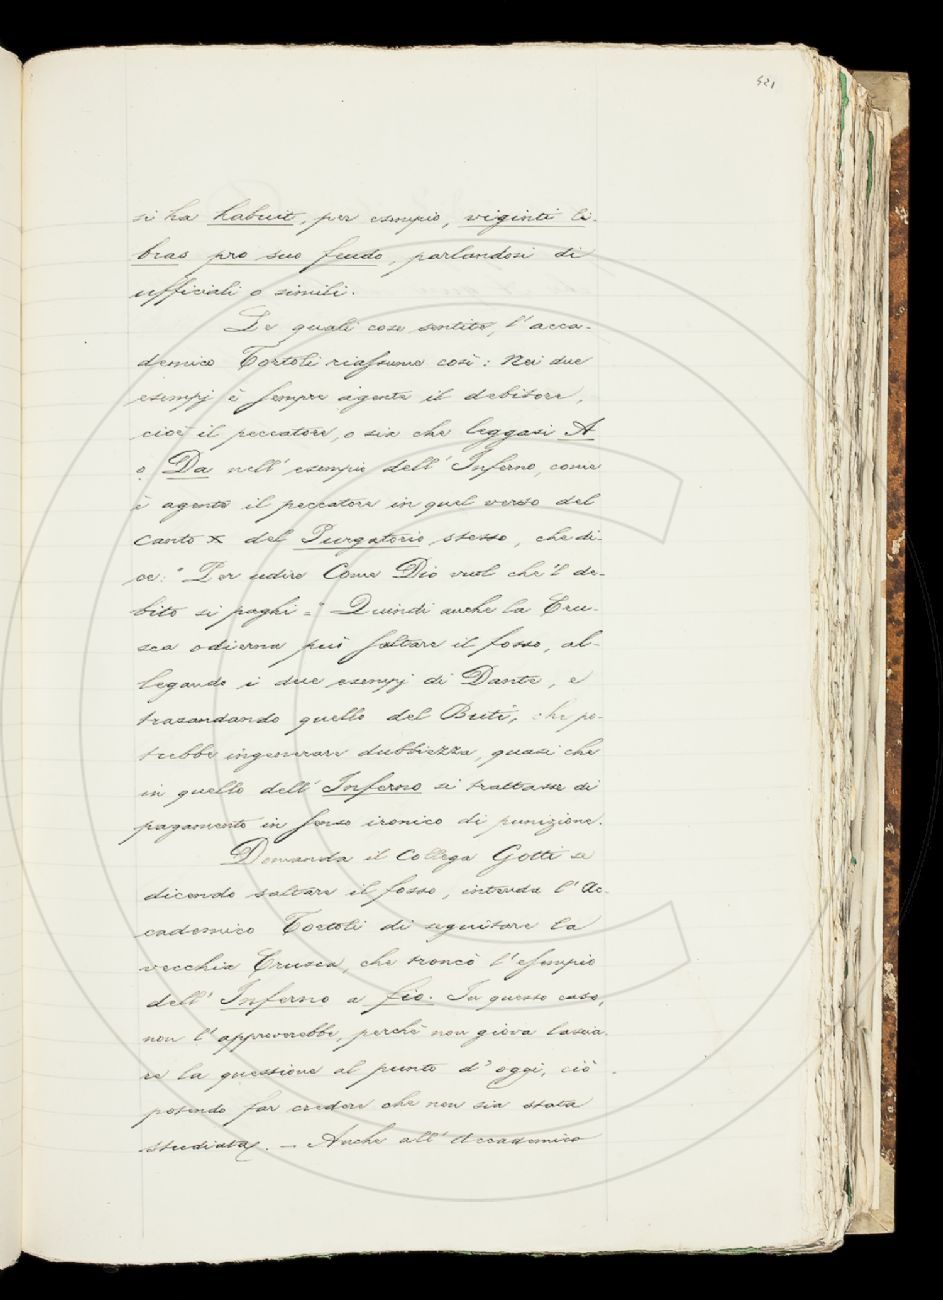 521
si ha habuit, per esempio, viginti li-
bras pro suo feudo, parlandosi di
ufficiali o simili.
Le quali cose sentite, l'acca-
demico Tortoli riassume così: Nei due
esempj è sempre agente il debitore,
cioè il peccatore, o sia che leggasi A
o Da nell'esempio dell'Inferno, come
è agente il peccatore in quel verso del
Canto X del Purgatorio stesso, che di-
ce: "Per udire Come Dio vuol che 'l de-
bito si paghi." Quindi anche la Cru-
sca odierna può saltare il fosso, al-
legando i due esempj di Dante, e
trasandando quello del Buti, che po-
trebbe ingenerare dubbiezza, quasi che
in quello dell'Inferno si trattasse di
pagamento in senso ironico di punizione.
Domanda il Collega Gotti se
dicendo saltare il fosso, intenda l'Ac-
cademico Tortoli di seguitare la
vecchia Crusca, che troncò l'esempio
dell'Inferno a fio. In questo caso,
non l'approverebbe, perchè non giova lascia-
re la questione al punto d'oggi, ciò
potendo far credere che non sia stata
studiata. — Anche all'Accademico